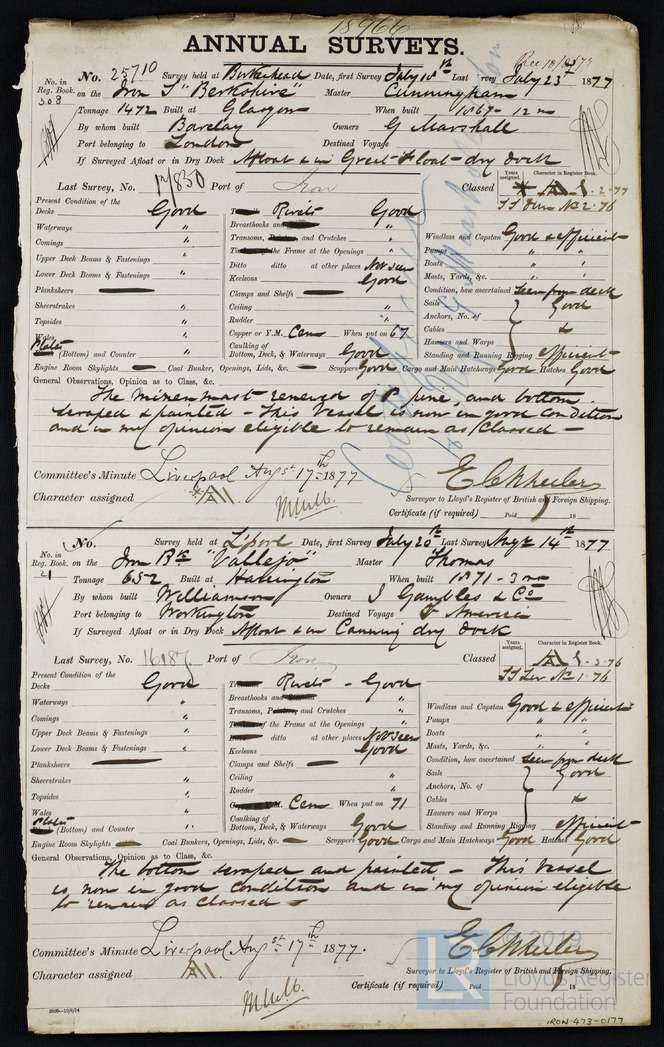 18966
ANNUAL SURVEYS.
Rec 18/8/77
No. 25710 Survey held at Birkenhead Date, first Survey July 10th Last Survey July 23rd 1877
No. in Reg. Book. 308 on the Iron S "Berkshire" Master Cunningham
Tonnage 1472 Built at Glasgow When built 1867 - 12 m
By whom built Barclay Owners G Marshall
Port belonging to London Destined Voyage
If Surveyed Afloat or in Dry Dock Afloat & in Great Float dry dock
Last Survey, No. 17830 Port of Iron Classed
Years assigned. Character in Register Book.
A 1 - 2-77
Present Condition of the
Decks Good
Waterways "
Comings "
Upper Deck Beams & Fastenings "
Lower Deck Beams & Fastenings "
Planksheers
Sheerstrakes "
Topsides "
Wales "
Plates (Bottom) and Counter "
Rivets Good
Breasthooks and "
Transoms, and Crutches "
the Frame at the Openings "
Ditto ditto at other places Not seen
Keelsons Good
Clamps and Shelfs
Ceiling "
Rudder "
Copper or Y.M. Cem When put on 67
Caulking of Bottom, Deck, & Waterways Good
Windlass and Capstan Good & efficient
Pumps " "
Boats " "
Masts, Yards, &c. " "
Condition, how ascertained Seen from deck
Sails Good
Anchors, No. of
Cables &
Hawsers and Warps
Standing and Running Rigging efficient
Engine Room Skylights Coal Bunker, Openings, Lids, &c. Scuppers Good Cargo and Main Hatchways Good Hatches Good
General Observations, Opinion as to Class, &c.
The mizenmast renewed of P pine, and bottom
scraped & painted - This Vessel is now in good condition
and in my opinion eligible to remain as Classed -
Committee's Minute Liverpool Augst 17th 1877
Character assigned A1
E C Wheeler
Surveyor to Lloyd's Register of British and Foreign Shipping.
Certificate (if required) Paid 18
No. Survey held at L'pool Date, first Survey July 20th Last Survey Augt 14th 1877
No. in Reg. Book. 21 on the Iron Bk "Vallejo" Master Thomas
Tonnage 652 Built at Harrington When built 1871 - 3 mo
By whom built Williamson Owners J Gambles & Co
Port belonging to Workington Destined Voyage S America
If Surveyed Afloat or in Dry Dock Afloat & in Canning dry dock
Last Survey, No. 16187 Port of Iron Classed
Years assigned. Character in Register Book.
A 1 - 3-76
Present Condition of the
Decks Good
Waterways "
Comings "
Upper Deck Beams & Fastenings "
Lower Deck Beams & Fastenings "
Planksheers
Sheerstrakes "
Topsides "
Wales "
Plates (Bottom) and Counter "
Rivets - Good
Breasthooks and "
Transoms, and Crutches "
of the Frame at the Openings "
ditto at other places Not seen
Keelsons Good
Clamps and Shelfs
Ceiling "
Rudder "
Cem When put on 71
Caulking of Bottom, Deck, & Waterways Good
Windlass and Capstan Good & efficient
Pumps " "
Boats " "
Masts, Yards, &c. " "
Condition, how ascertained Seen from deck
Sails Good
Anchors, No. of
Cables &
Hawsers and Warps
Standing and Running Rigging efficient
Engine Room Skylights Coal Bunkers, Openings, Lids, &c. Scuppers Good Cargo and Main Hatchways Good Hatches Good
General Observations, Opinion as to Class, &c.
The bottom scraped and painted - This Vessel
is now in good condition and in my opinion eligible
to remain as Classed -
Committee's Minute Liverpool Augst 17th 1877.
Character assigned A1
E C Wheeler
Surveyor to Lloyd's Register of British and Foreign Shipping.
Certificate (if required) Paid 18
© 2019
LR Lloyd's Register Foundation
IRON-473-0177